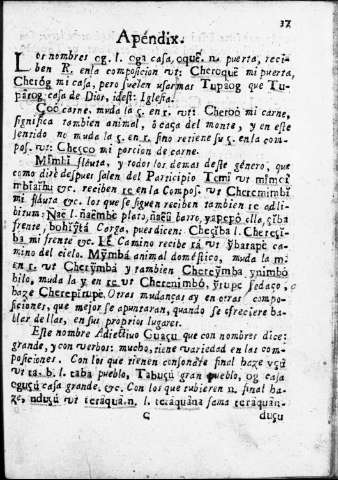 37
Apéndix.
Los nombres og. l. oga casa, oquê. n. puerta, reci-
ben R. en la composicion vt: Cheroquê mi puerta,
Cheróg mi casa, pero suelen usar mas Tupãog que Tu-
pãrog casa de Dios, idest: Iglesia.
Çoó carne. muda la ç. en r. vt: Cheroó mi carne,
significa tambien animal, ó caça del monte, y en este
sentido no muda la ç. en r. sino retiene su ç. en la com-
pos. vt: Cheçoo mi porcion de carne.
Mĩmbĩ flauta, y todos los demas deste género, que
como diré despues salen del Participio Temi vt
&c. reciben re en la Compos. vt Cheremimbĩ
mi flauta &c. los que se siguen reciben tambien re adli-
bitum: Ñaé l. ñaẽmbé plato, ñaẽũ barro, yapepó olla, çĩba
frente, bohĩỹtá Carga, pues dicen: Cheçĩba l. Chereçĩ-
ba mi frente &c. Camino recibe rá vt ỹbarapé ca-
mino del cielo. Mỹmbá animal doméstico, muda la m.
en r. vt Cherỹmbá y tambien Chereỹmba. ynimbó
hilo, muda la y en re vt Cherenimbó, ỹrupé sedaço,
haze Cherepirupé. Otras mudanças ay en otras compo-
siciones, que mejor se apuntaran, quando se ofreciere ha-
blar dellas, en sus proprios lugares.
Este nombre Adiectivo Guaçu que con nombres dice:
grande, y con verbos: mucho, tiene variedad en las com-
posiciones. Con los que tienen consonante final haze vçú
vt ta. b. l. taba pueblo, Tabuçú gran pueblo, og casa
oguçú casa grande. &c. Con los que tubieren n. final ha-
ze, nduçú vt teráquã. n. l. teráquãna fama teráquãn-
C duçu